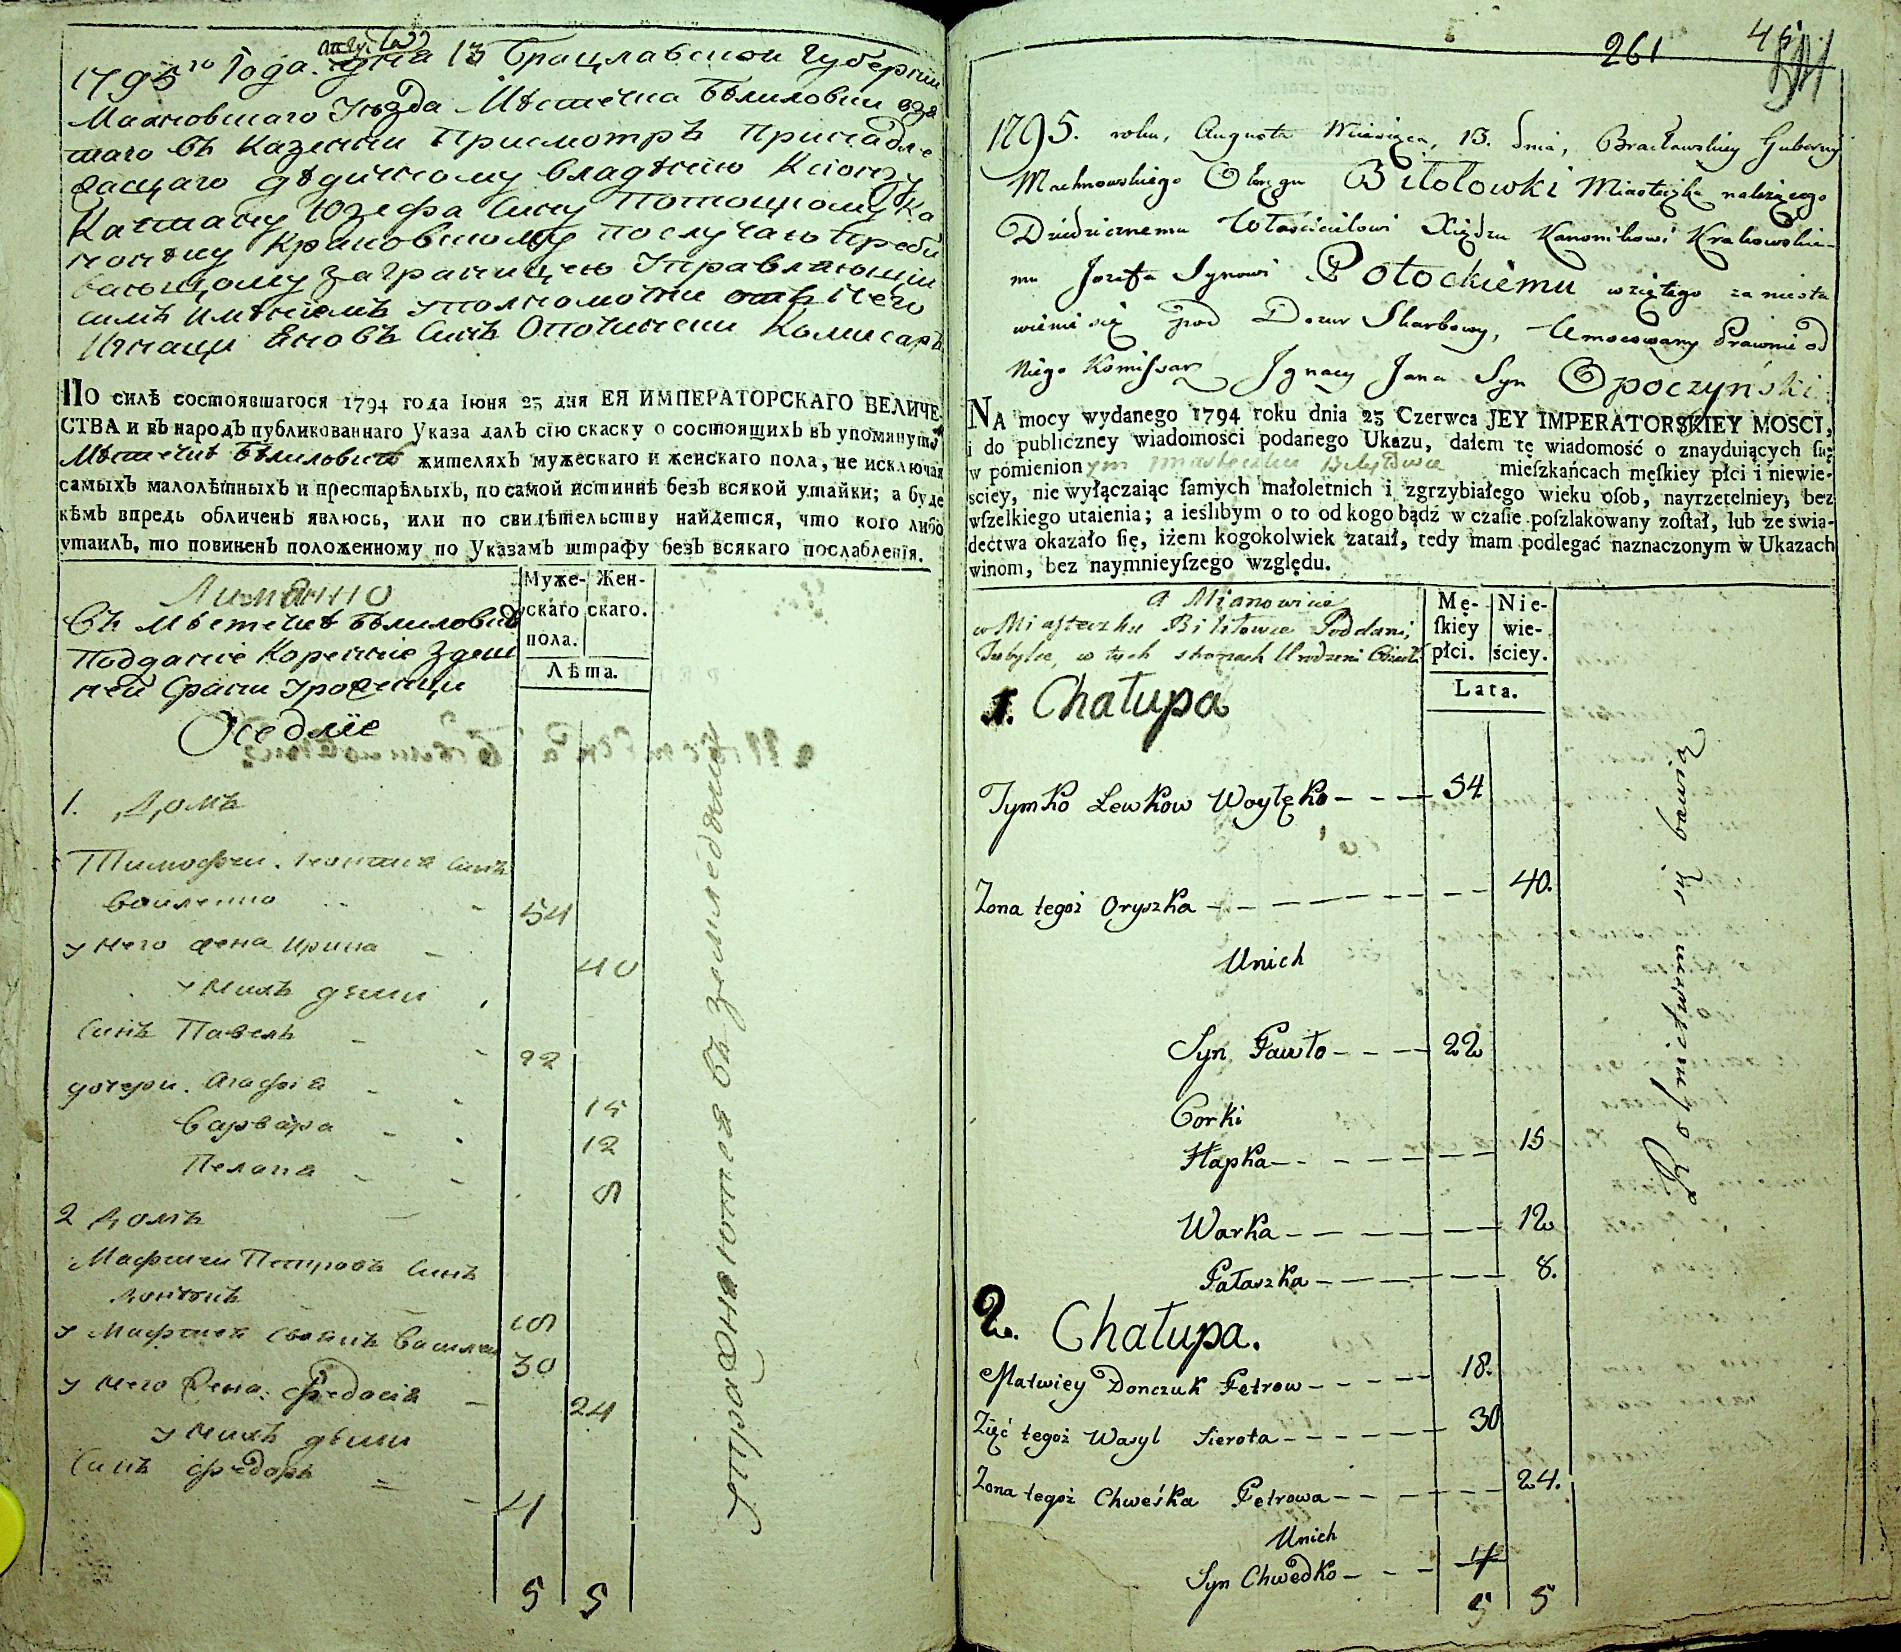 1795го Года августа дня 13 Брацлавской Губернии
Махновшаго Уѣзда Мѣстечка Бѣлиловки взя
таго въ Казенни Присмотръ Принадле
жащаго дѣдичному владѣнию Ксіонзу
Каштану Юзефа Сину Потоцкому Ка
нонѣку Краковскому По случаю преби
вающому Заграницею Управляющи
симъ имѣниемъ Уполномочни отъ Него
Игнаци Яновъ Синъ Опочински Комисаръ
По силѣ состоявшагося 1794 года Іюня 23 дня ЕЯ ИМПЕРАТОРСКАГО ВЕЛИЧЕ-
СТВА и въ народъ публикованнаго Указа далъ сію скаску о состоящихъ въ упомянутѣ
Мѣстечкѣ Бѣлиловкѣ жителяхъ мужескаго и женскаго пола, не исключая
самыхъ малолѣтныхъ и престарѣлыхъ, по самой истиннѣ безъ всякой утайки; а буде
кѣмъ впредь обличенъ явлюсь, или по свидѣтельству найдется, что кого либо
утаилъ, то повиненъ положенному по Указамъ штрафу безъ всякаго послабленія.
Муже-скаго пола. Жен-скаго.
Лѣта.
Имянно
Въ Мѣстечкѣ Бѣлиловкѣ
Подданіе Коренніе Здеш
ней Страни Уроженци
Оседліе
1. Домъ
Тимофѣи Леонтия Синъ
Воиленко 54
у Него жена Ирина 40
у Нихъ дѣти
Синъ Павелъ 22
дочери Агафія 15
Варвара 12
Пелагія 8
2 Домъ
Мафтеи Петровъ Синъ
18
у Мафтея Своякъ Василеи 30
у Него Жена Федосія 24
у Нихъ дѣти
Синъ Федоръ 4
5 5
Упражняются въ земледѣліи
261
1795. roku, Augusta Miesiąca, 13. dnia, Bracławskiey Guberny
Machnowskiego Okręgu Biłołowki Miasteczka należącego
Dziedzicznemu Właścicielowi Xiędzu Kanonikowi Krakowskie-
mu Jozefa Synowi Potockiemu wziętego za niesta
wienie się pod Dozur Skarbowy, Umocowany Prawnie od
Niego Komissarz Ignacy Jana Syn Opoczyński
NA mocy wydanego 1794 roku dnia 23 Czerwca JEY IMPERATORSKIEY MOSCI,
i do publiczney wiadomości podanego Ukazu, dałem tę wiadomość o znayduiących się
w pomienionym miasteczku Biłyłowce mieſzkańcach męſkiey płci i niewie-
ściey, nie wyłączaiąc ſamych małoletnich i zgrzybiałego wieku oſob, nayrzetelniey, bez
wſzelkiego utaienia; a ieślibym o to od kogo bądź w czaſie poſzlakowany zoſtał, lub ze świa-
dectwa okazało ſię, iżem kogokolwiek zataił, tedy mam podlegać naznaczonym w Ukazach
winom, bez naymnieyſzego względu.
Mę-ſkiey płci. Nie-wie-ściey.
Lata.
a Mianowicie
w Miasteczku Biłiłowce Poddani,
Tubylce, w tych stronach Urodzeni Osiedli
1. Chałupa
Tymko Lewkow Woylęko 54
Zona tegoż Oryszka 40.
Unich
Syn Pawło 22
Corki
Hapka 15
Warka 12
Pałaszka 8.
2. Chałupa.
Matwiey Donczuk Petrow 18.
Zięć tegoż Wasyl Sierota 30
Zona tegoż Chweśka Petrowa 24.
Unich
Syn Chwedko 4
5 5
Rolnictwem się bawią